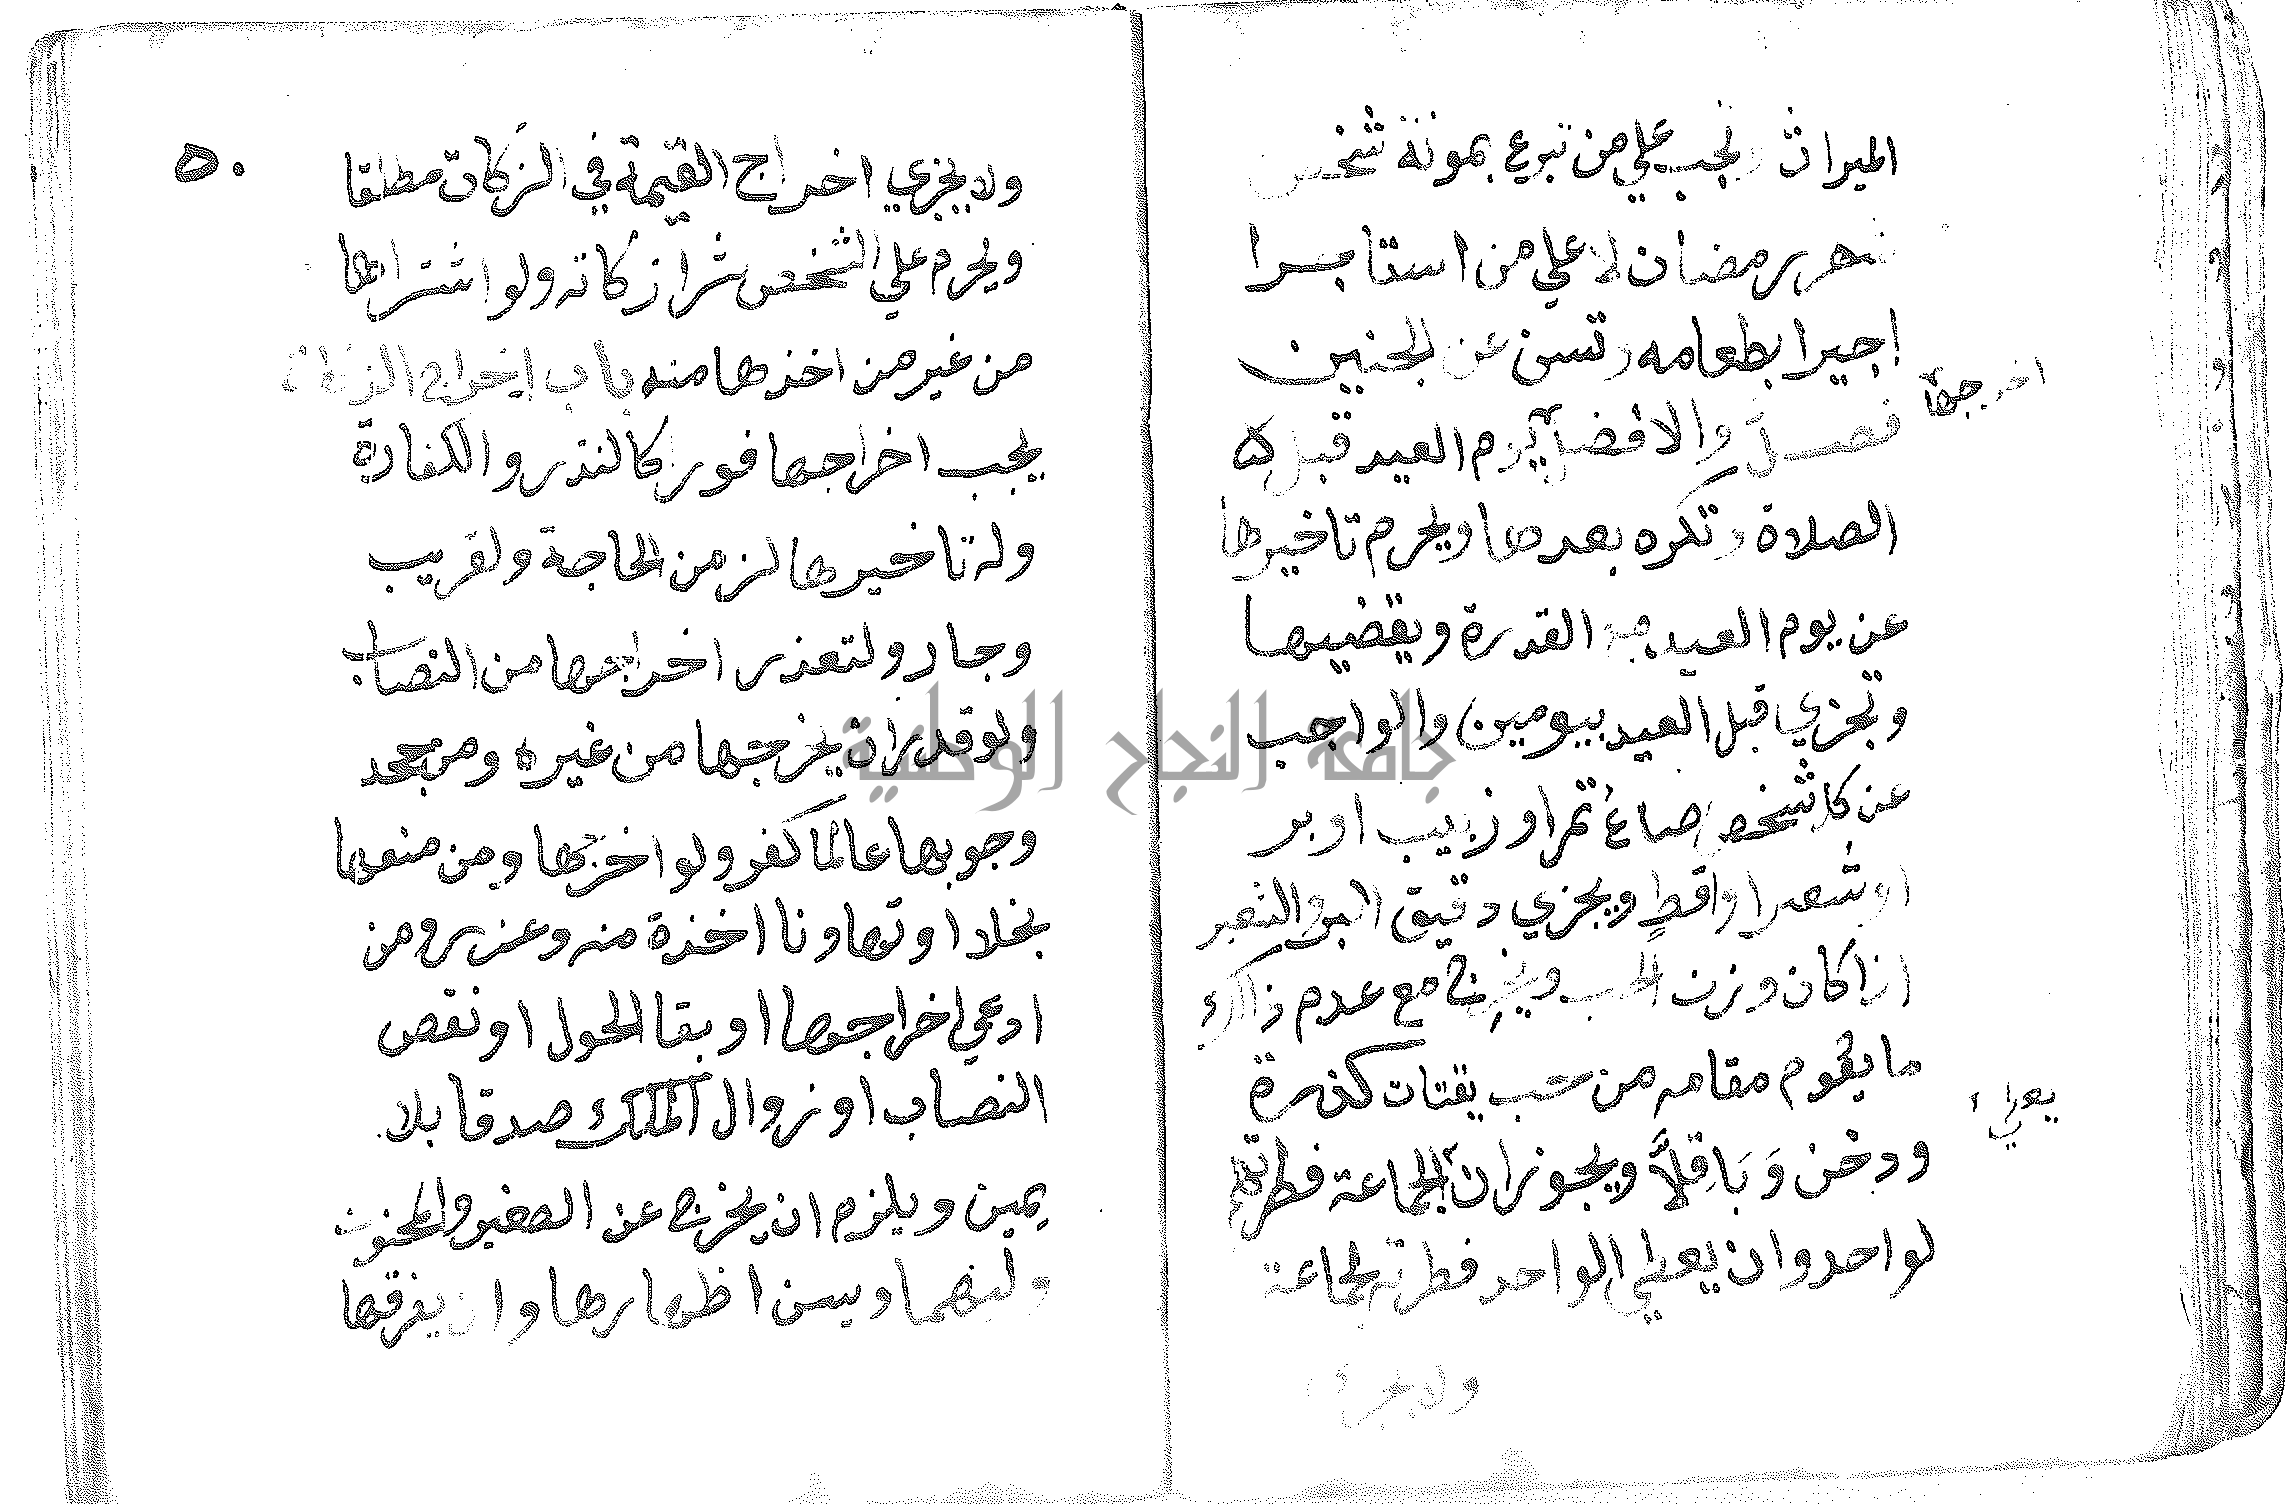 الميراث وتجب علي من تبرع بمونة شخص
شهر رمضان لا علي من استاجر
اجيرا بطعامه وتسن عن الجنين
فصل والافضل يوم العيد قبل
اخرجها
الصلاة وتكره بعدها ويحرم تاخيرها
عن يوم العيد مع القدرة ويقضيها
وتجزي قبل العيد بيومين والواجب
عن كل شخص صاع تمر او زبيب او بر
او شعير او اقط ويجزي دقيق البر والشعير
اذا كان وزن الحب ويخرج مع عدم ذالك
ما يقوم مقامه من حب يقتات كذرة
يعطي
ودخن وَبَاقِلاَّ ويجوز ان الجماعة فطرتهم
لواحد وان يعطي الواحد فطرته لجماعة
ولا يجزي
٥٠
ولا يجزي اخراج القيمة في الزكات مطلقا
ويحرم علي الشخص شرا زكاته ولو اشتراها
من غير من اخذها منه باب اخراج الزكاة
يجب اخراجها فورا كالنذر والكفارة
وله تاخيرها لزمن الحاجة ولقريب
وجار ولتعذر اخراجها من النصاب
ولو قدر ان يخرجها من غيره ومن جحد
وجوبها عالما كفر ولو اخرجها ومن منعها
بخلا او تهاونا اخذة منه وعزر ومن
ادعي اخراجها او بقا الحول او نقص
النصاب او زوال الملك صدق بلا
يمين ويلزم ان يخرج عن الصغير والمجنون
وليهما ويسن اظهارها وان يفرقها
جامعة النجاح الوطنية